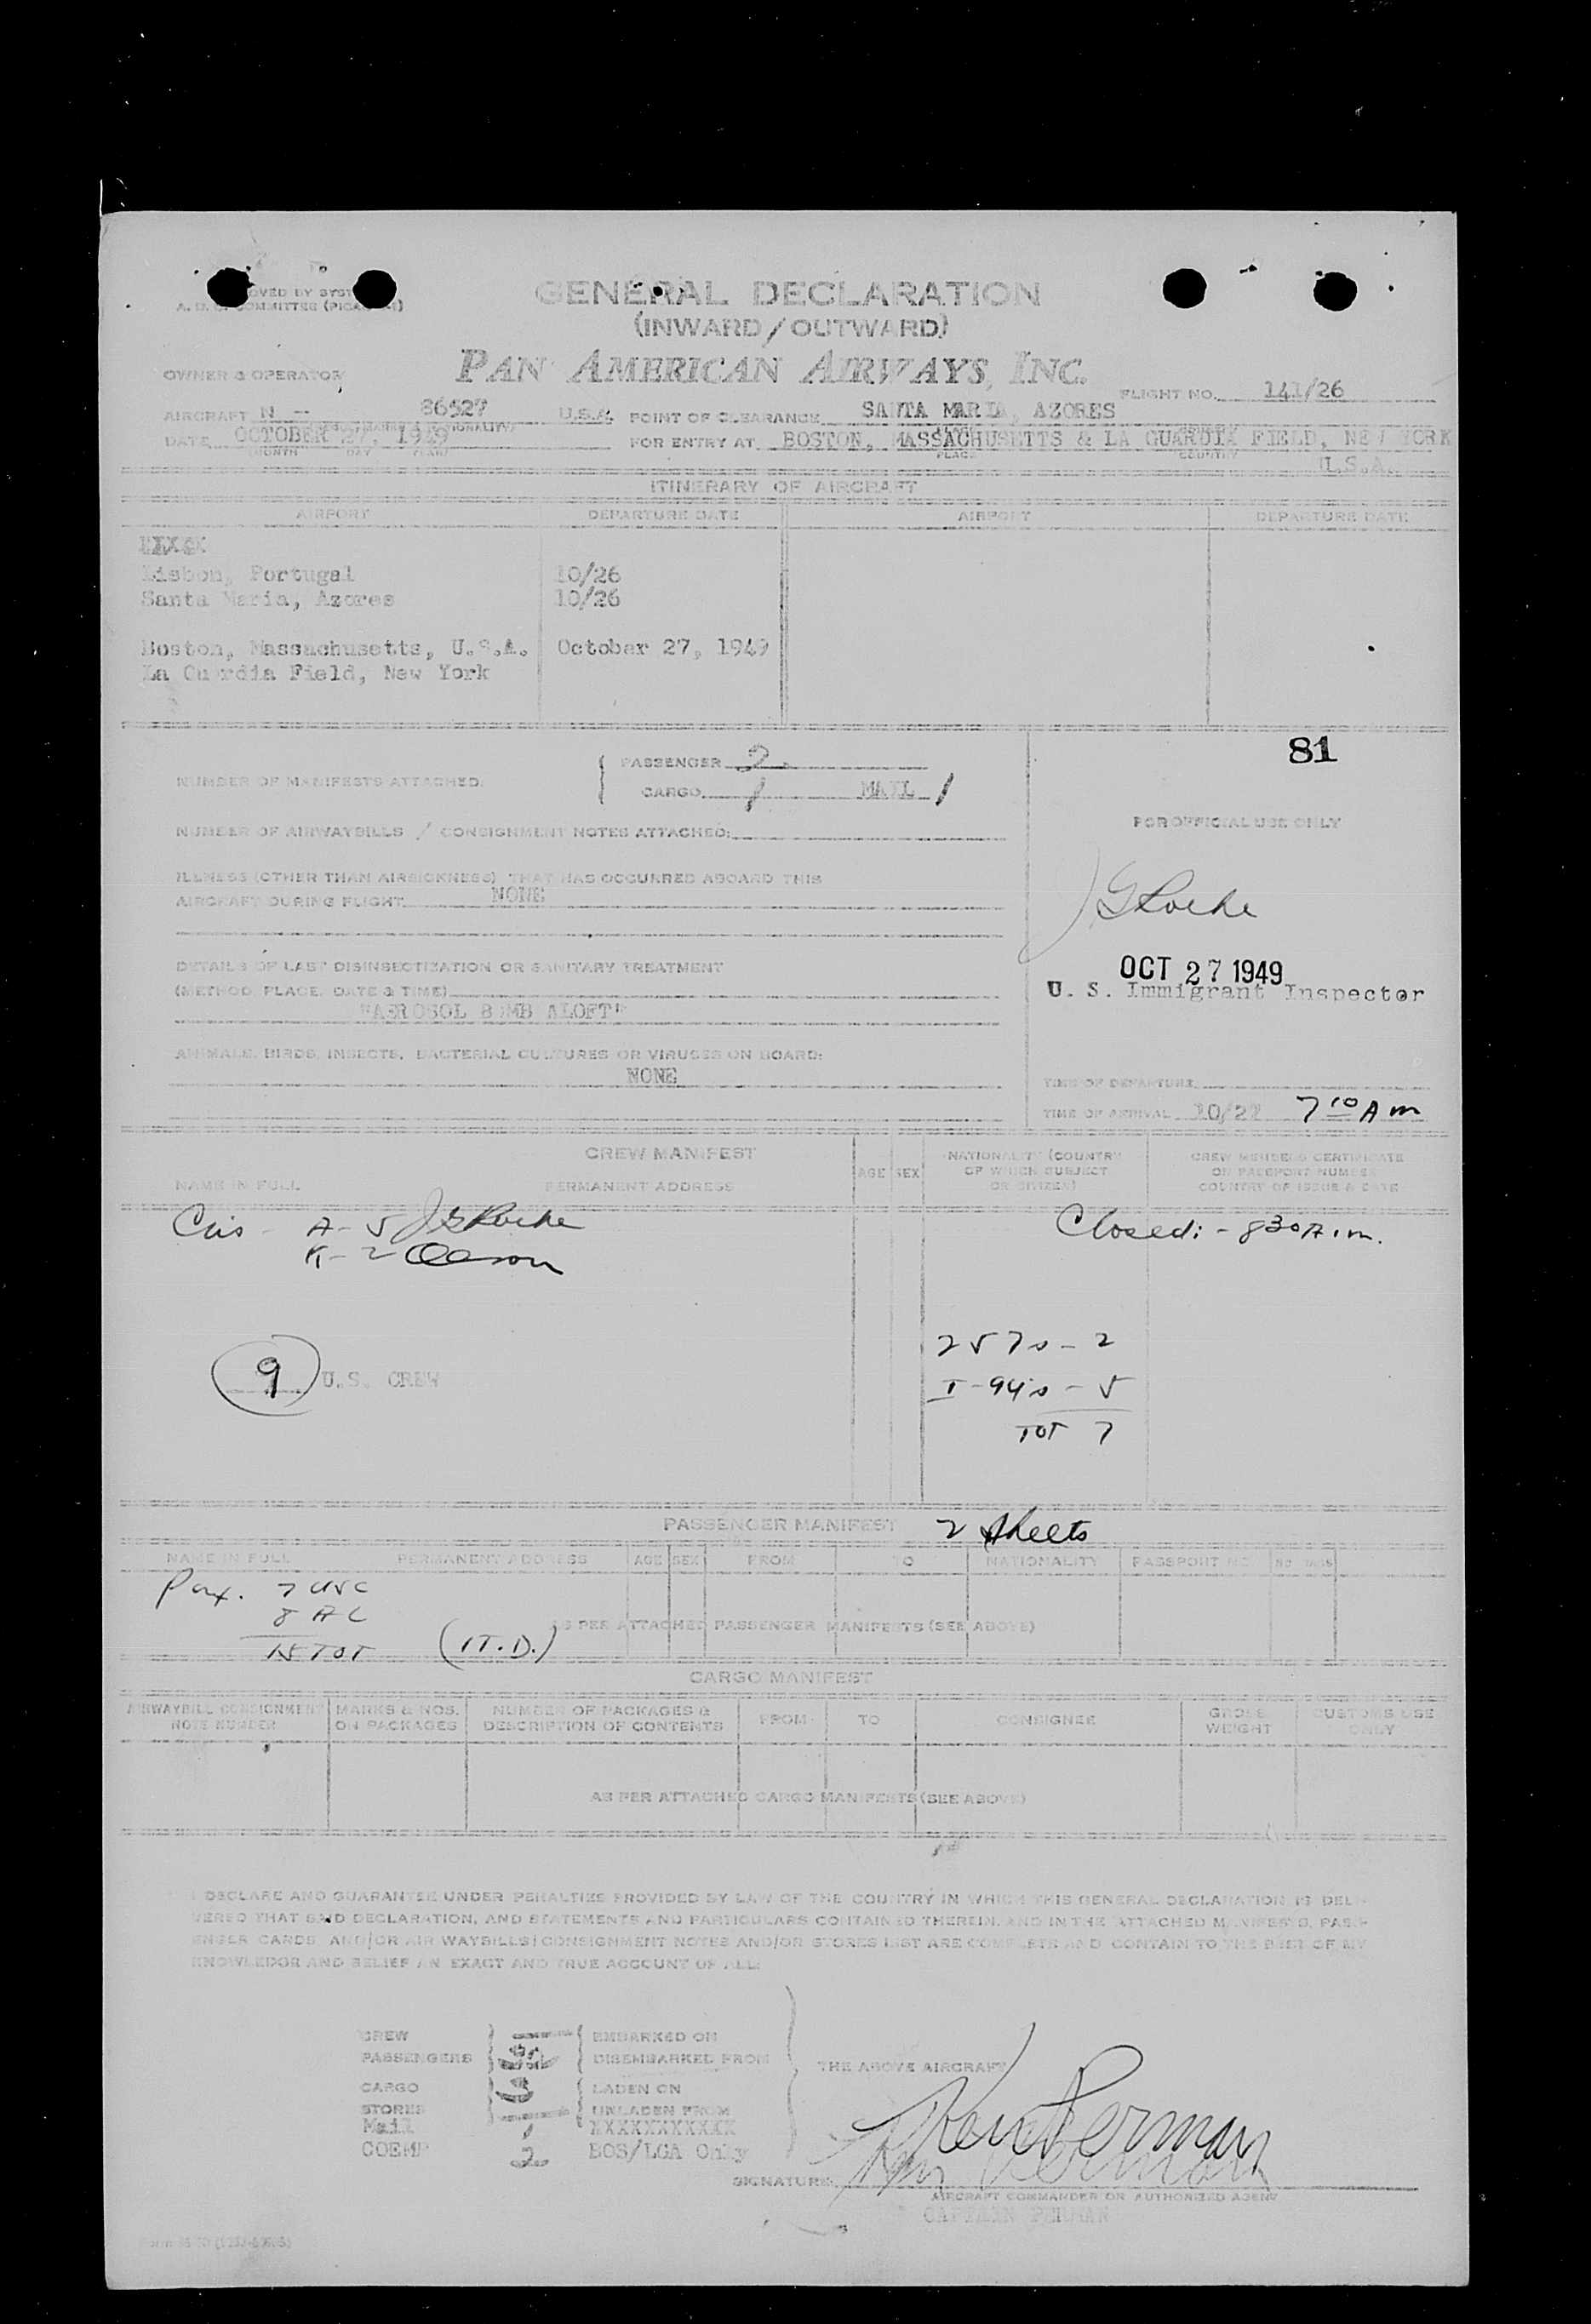 GENERAL DECLARATION
(INWARD/OUTWARD)
PAN AMERICAN AIRWAYS, INC.
OWNER & OPERATOR
FLIGHT NO. 141/26
AIRCRAFT N -- 86527 U.S.A. POINT OF CLEARANCE SANTA MARIA, AZORES
DATE OCTOBER 27, 1949 FOR ENTRY AT BOSTON, MASSACHUSETTS & LA GUARDIA FIELD, NEW YORK
MONTH DAY YEAR PLACE COUNTRY U.S.A.
ITINERARY OF AIRCRAFT
AIRPORT DEPARTURE DATE AIRPORT DEPARTURE DATE
Lisbon, Portugal 10/26
Santa Maria, Azores 10/26
Boston, Massachusetts, U.S.A. October 27, 1949
La Guardia Field, New York
81
NUMBER OF MANIFESTS ATTACHED: PASSENGER 2
CARGO 1 MAIL 1
NUMBER OF AIRWAYBILLS / CONSIGNMENT NOTES ATTACHED:
FOR OFFICIAL USE ONLY
ILLNESS (OTHER THAN AIRSICKNESS) THAT HAS OCCURRED ABOARD THIS
AIRCRAFT DURING FLIGHT NONE
JG Roche
DETAILS OF LAST DISINSECTIZATION OR SANITARY TREATMENT
(METHOD, PLACE, DATE & TIME)
"AEROSOL BOMB ALOFT"
OCT 27 1949
U. S. Immigrant Inspector
ANIMALS, BIRDS, INSECTS, BACTERIAL CULTURES OR VIRUSES ON BOARD:
NONE
TIME OF DEPARTURE
TIME OF ARRIVAL 10/27 7 10 A m
CREW MANIFEST
NAME IN FULL PERMANENT ADDRESS AGE SEX NATIONALITY (COUNTRY OF WHICH SUBJECT OR CITIZEN) CREW MEMBERS CERTIFICATE OR PASSPORT NUMBER COUNTRY OF ISSUE & DATE
A-5 JG Roche
K-2
Closed: - 8 30 A.m.
257s - 2
9 U.S. CREW
I-94s - 5
TOT 7
PASSENGER MANIFEST 2 sheets
NAME IN FULL PERMANENT ADDRESS AGE SEX FROM TO NATIONALITY PASSPORT NO.
Pax. 7 USC
8 AL
15 TOT (1T.D.)
AS PER ATTACHED PASSENGER MANIFESTS (SEE ABOVE)
CARGO MANIFEST
AIRWAYBILL CONSIGNMENT NOTE NUMBER MARKS & NOS. ON PACKAGES NUMBER OF PACKAGES & DESCRIPTION OF CONTENTS FROM TO CONSIGNEE GROSS WEIGHT CUSTOMS USE ONLY
AS PER ATTACHED CARGO MANIFESTS (SEE ABOVE)
I DECLARE AND GUARANTEE UNDER PENALTIES PROVIDED BY LAW OF THE COUNTRY IN WHICH THIS GENERAL DECLARATION IS DELI-
VERED THAT SAID DECLARATION, AND STATEMENTS AND PARTICULARS CONTAINED THEREIN, AND IN THE ATTACHED MANIFESTS, PASS-
ENGER CARDS, AND/OR AIR WAYBILLS/CONSIGNMENT NOTES AND/OR STORES LIST ARE COMPLETE AND CONTAIN TO THE BEST OF MY
KNOWLEDGE AND BELIEF AN EXACT AND TRUE ACCOUNT OF ALL:
CREW EMBARKED ON
PASSENGERS DISEMBARKED FROM THE ABOVE AIRCRAFT
CARGO LADEN ON
STORES UNLADEN FROM
Mail 1 XXXXXXXXXXX
COEMP 2 BOS/LGA Only
Ken Perman
SIGNATURE
AIRCRAFT COMMANDER OR AUTHORIZED AGENT
CAPTAIN PERMAN